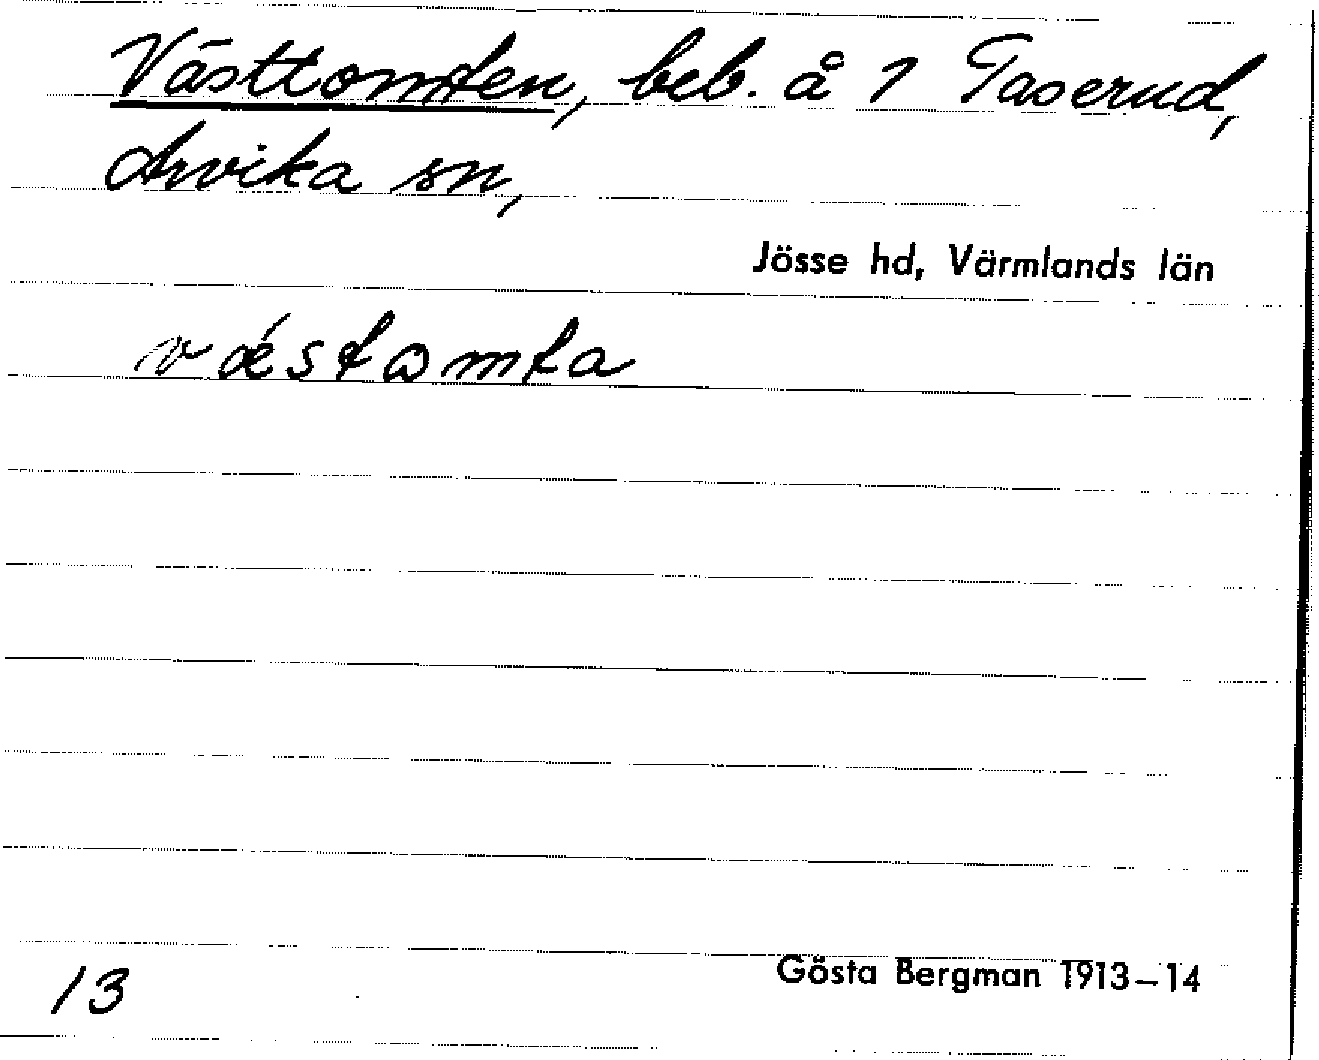 Västtomten, beb. å 1 Taserud,
Arvika sn,
Jösse hd, Värmlands län
vǽstωmta
13
Gösta Bergman 1913–14